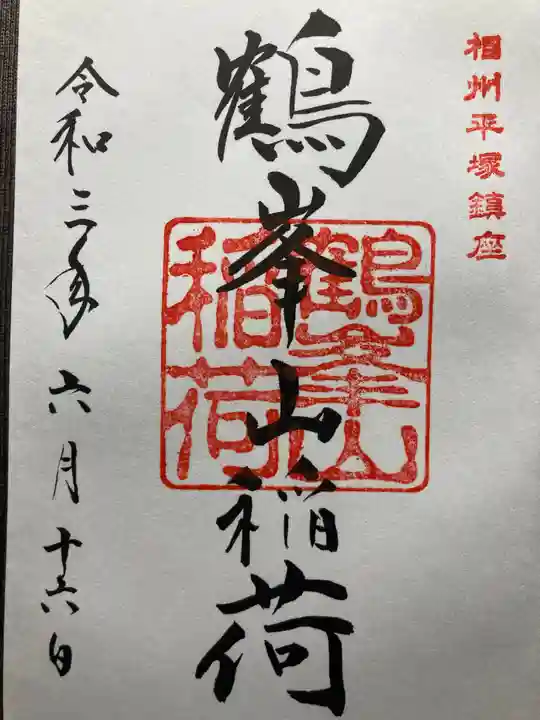 相州平塚鎮座
鶴峯山稲荷
鶴峯山
稲荷
令和三年六月十六日